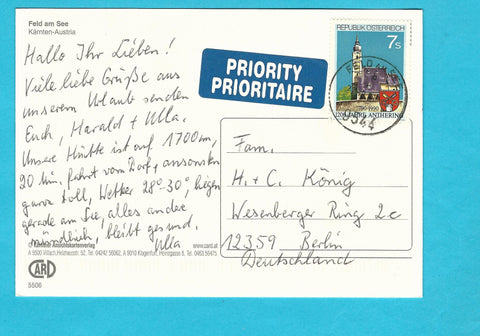 Feld am See
Kärnten-Austria
Hallo Ihr Lieben!
Viele liebe Grüße aus
unserem Urlaub senden
Euch, Harald + Ulla.
Unsere Hütte ist auf 1700m,
20 Min. Fahrt vom Dorf, ansonsten
ganz toll, Wetter 28°-30°, liegen
gerade am See, alles andere
mündlich, bleibt gesund.
Ulla
PRIORITY
PRIORITAIRE
REPUBLIK ÖSTERREICH
7s
790-1990
1200 JAHRE ANTHERING
FELD AM SEE
9544
Fam.
H. + C. König
Wesenberger Ring 2c
12359 Berlin
Deutschland
Ansichtskartenverlag
www.card.at
A 9500 Villach, Heidnerstr. 52, Tel. 04242 56062, A 9010 Klagenfurt, Tel. 0463 56475
CARD
5506